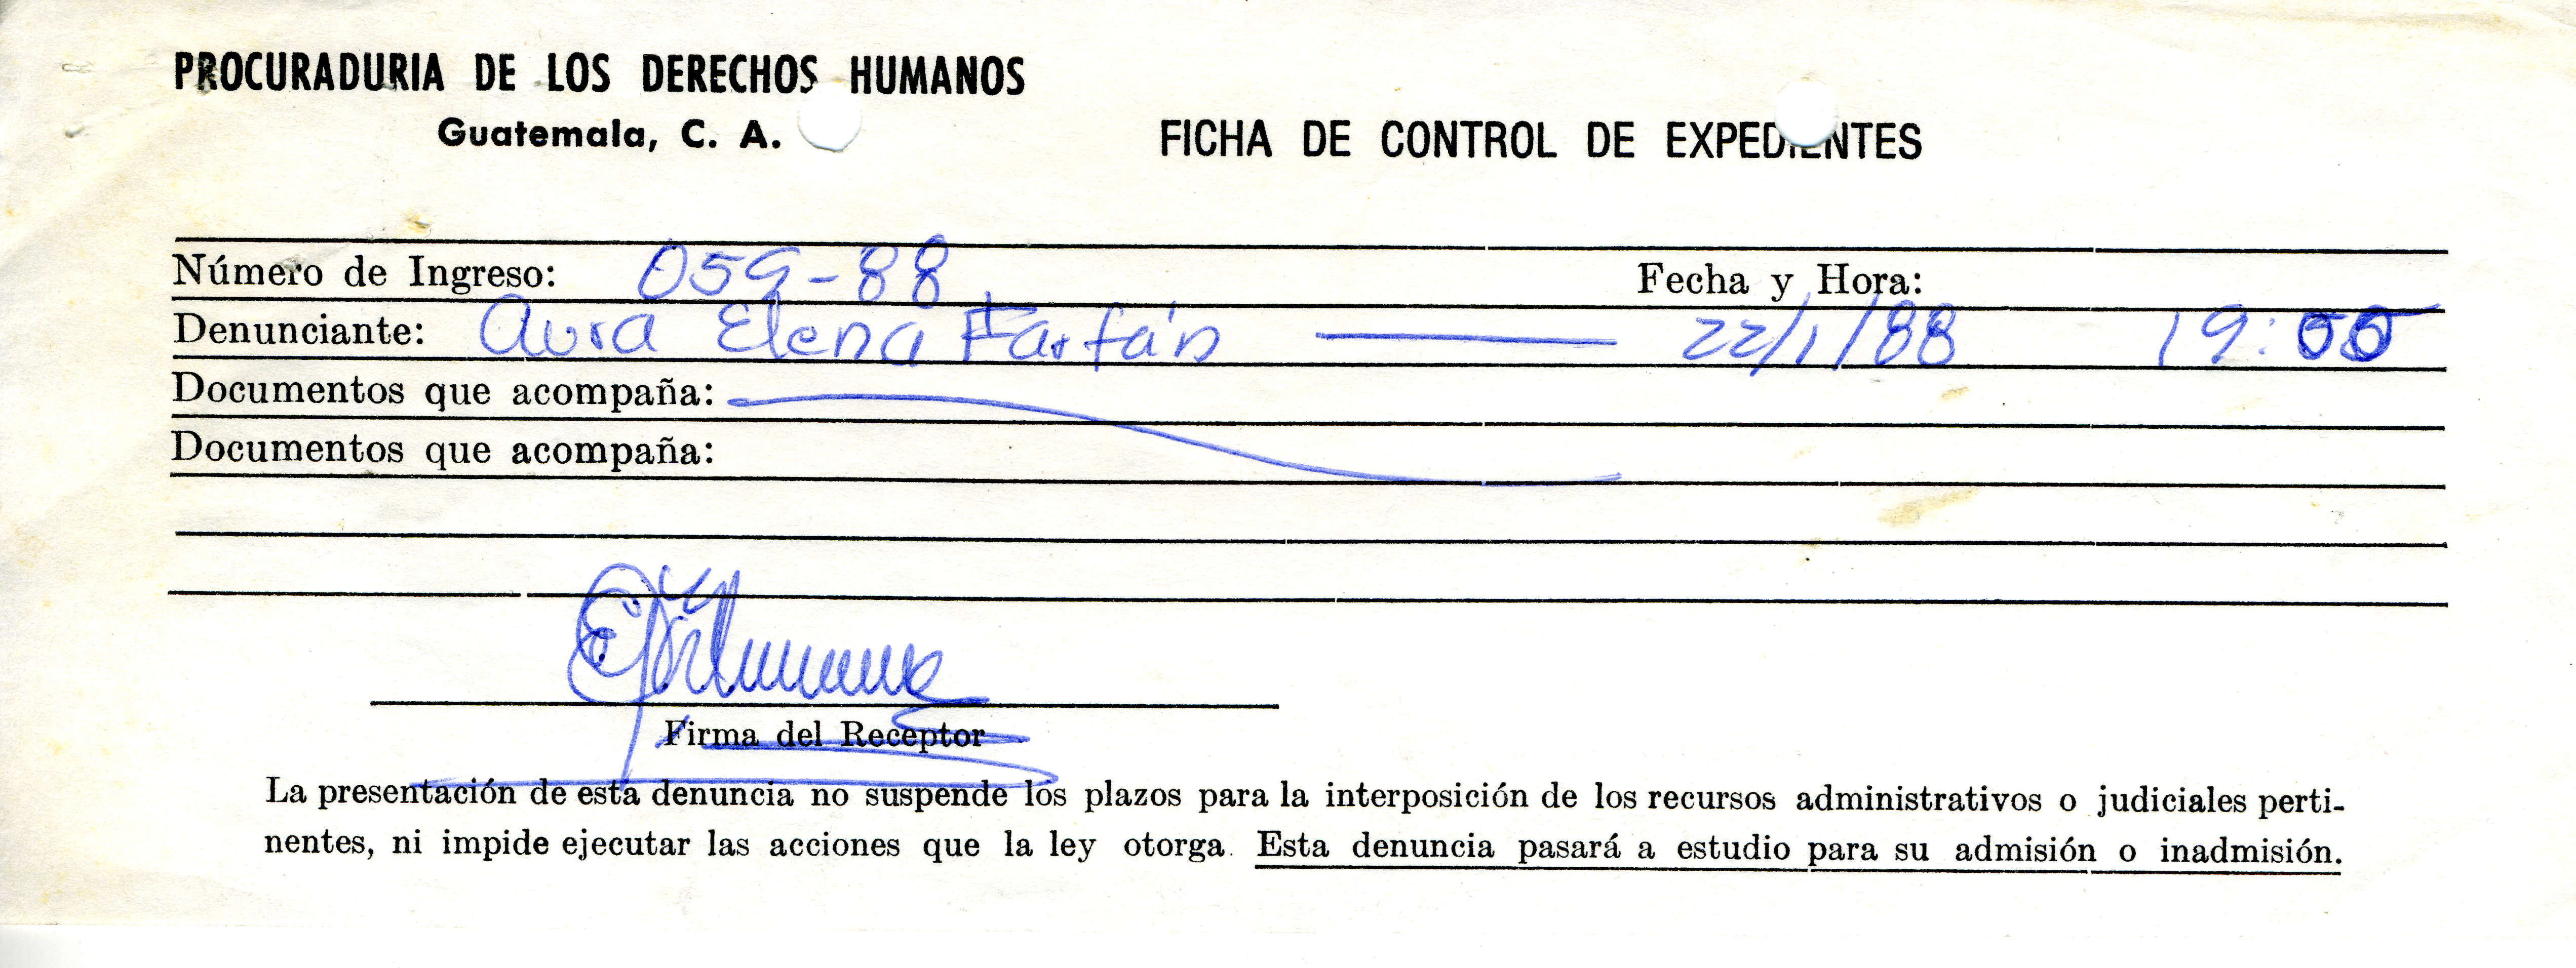 PROCURADURIA DE LOS DERECHOS HUMANOS
Guatemala, C. A.
FICHA DE CONTROL DE EXPEDIENTES
Número de Ingreso: 059-88 Fecha y Hora:
Denunciante: Aura Elena Farfán 22/1/88 19:00
Documentos que acompaña:
Documentos que acompaña:
Firma del Receptor
La presentación de esta denuncia no suspende los plazos para la interposición de los recursos administrativos o judiciales perti-
nentes, ni impide ejecutar las acciones que la ley otorga. Esta denuncia pasará a estudio para su admisión o inadmisión.